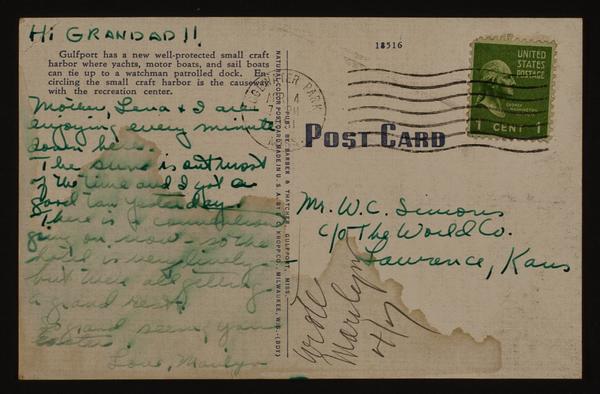 Hi GRANDAD!!
18516
Gulfport has a new well-protected small craft
harbor where yachts, motor boats, and sail boats
can tie up to a watchman patrolled dock. En
circling the small craft harbor is the causeway
with the recreation center.
Mother, Lena & I are
enjoying every minute
down here.
The sun is out most
of the time and I got a
good tan yesterday.
There is a convention
going on, now - so the
hotel is very lively
but we're all getting
a grand rest.
grand seeing you
Easter
Love, Marilyn
NATURAL COLOR POST CARD MADE IN U. S. A. BY E. C. KROPP CO., MILWAUKEE, WIS.
PUB. BY BARBER & THATCHER, GULFPORT, MISS.
EDGEWATER PARK
POST CARD
UNITED
STATES
POSTAGE
GEORGE
WASHINGTON
1 CENT 1
Mr. W. C. Simons
c/o The World Co.
Lawrence, Kans
wrote
Marilyn
4/7